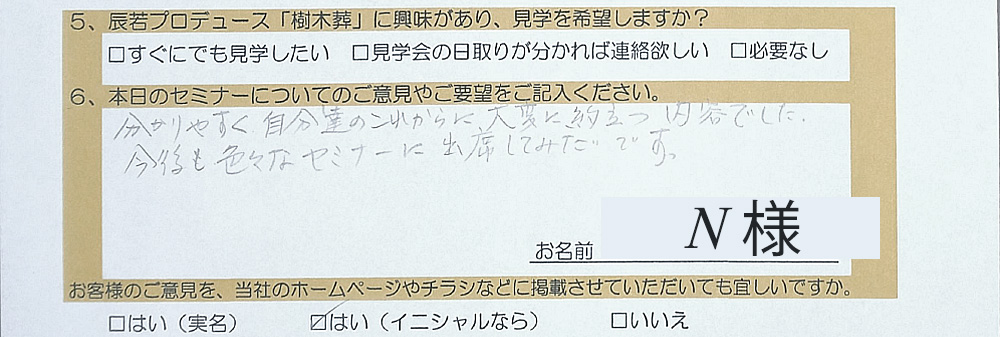 5、辰若プロデュース「樹木葬」に興味があり、見学を希望しますか？
□すぐにでも見学したい □見学会の日取りが分かれば連絡欲しい □必要なし
6、本日のセミナーについてのご意見やご要望をご記入ください。
分かりやすく自分達のこれからに、大変に約立つ内容でした.
今後も色々なセミナーに出席してみたいです。
お名前 N 様
お客様のご意見を、当社のホームページやチラシなどに掲載させていただいても宜しいですか。
□はい（実名） ☑はい（イニシャルなら） □いいえ